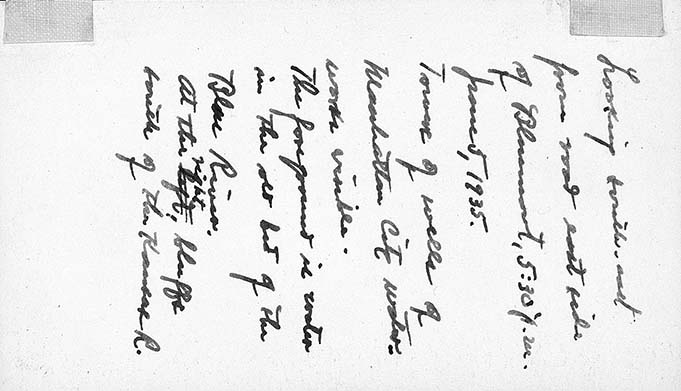 Looking south-east
from road east side
of Bluemont, 5:30 p.m.
June 5, 1935.
Tower of wells of
Manhattan City water-
works visible.
The foreground is water
in the old bed of the
Blue River.
At the right, bluffs
south of the Kansas R.